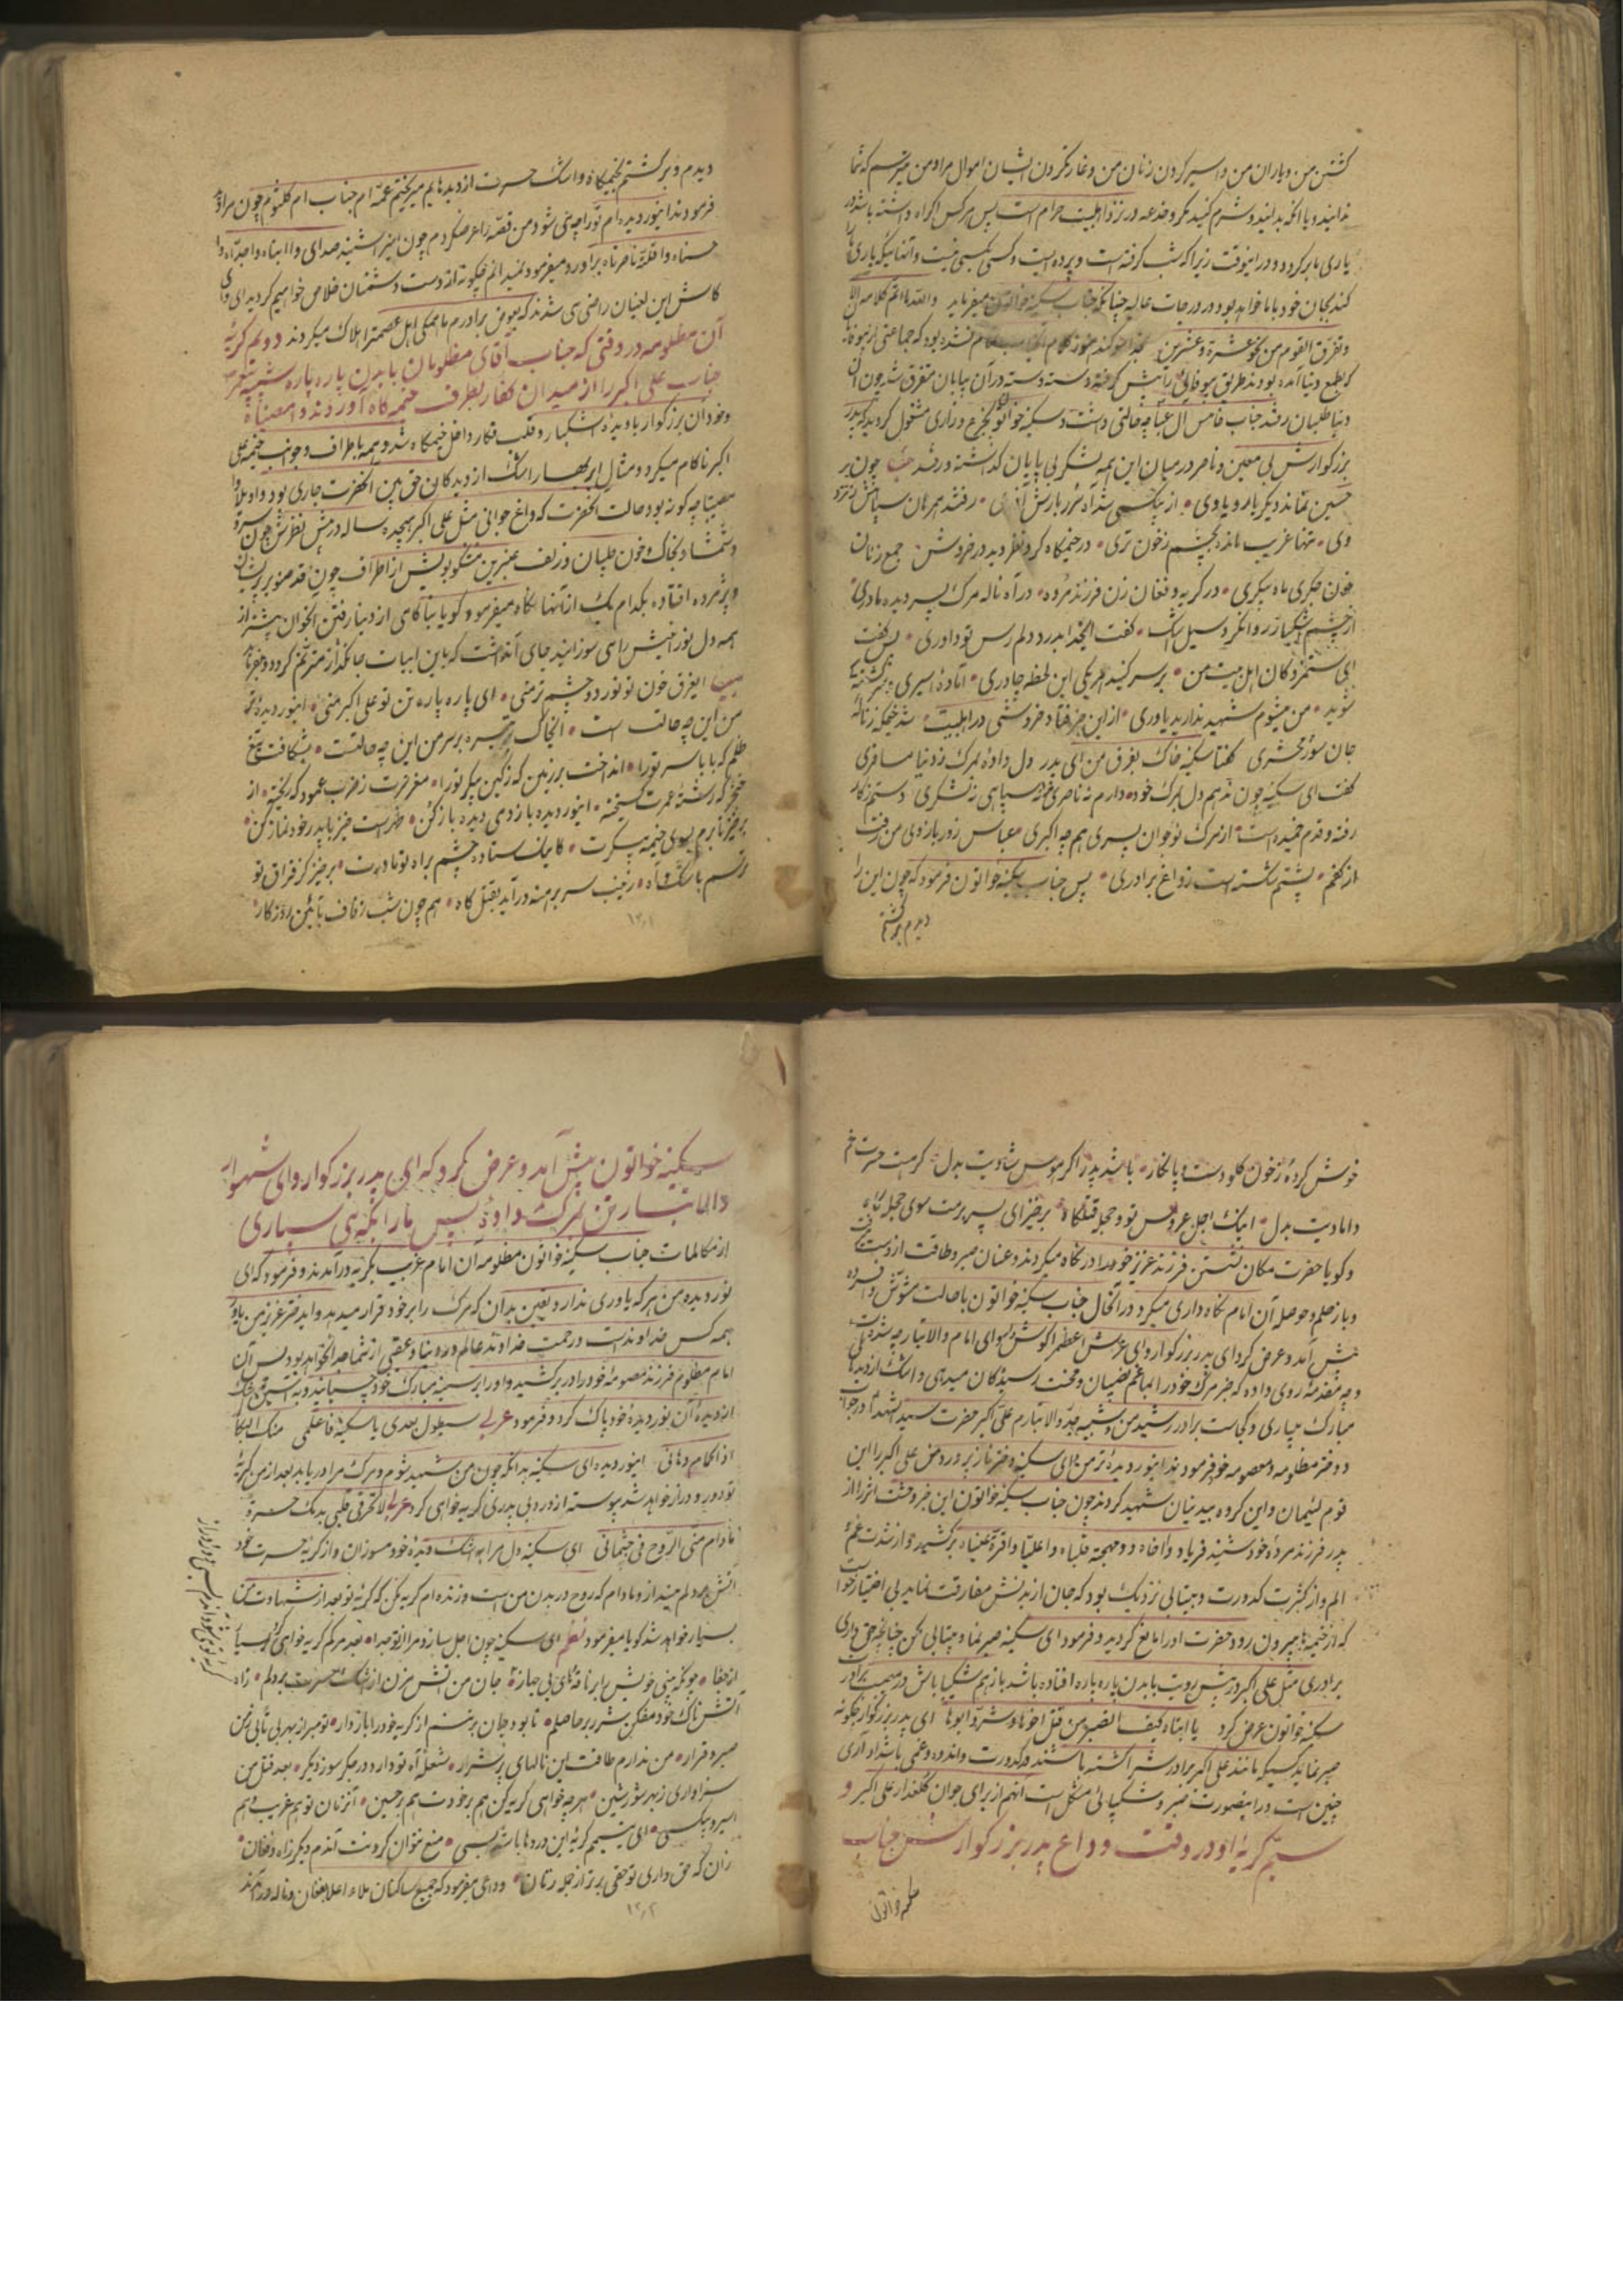 کشتن من و یاران من و اسیر کردن زنان من و غارت کردن ایشان اموال مرا و من میترسم که شما
ندانید و یا آنکه بدانید و شرم کنید مکر و خدعه در نزد اهلبیت حرام است پس هر کس اکراه داشته باشد از
یاری ما برگردد و در اینوقت زیرا که شب گرفته است و پرده ایست و کسی بکسی نیست و آنها نیکه یاری ما را
کنند بجان خود با ما خواهد بود در درجات عالیه چنانکه جناب سکینه خواتون میفرماید والله ما اتم کلامه الا
و تفرق القوم من نحو عشرة و عشرین بخدا سوگند هنوز کلام تمام نشده بود که جماعتی از بیوفایان
که بطمع دنیا آمده بودند طریق بیوفائی را پیش گرفته و دسته دسته در آن بیابان متفرق شد چون آن
دنیا طلبان رفتند جناب خامس آل عبا چه حالتی داشت و سکینه خواتون بجزع و زاری مشغول گردید که پدر
بزرگوارش بی معین و ناصر در میان این همه لشکر بی پایان گذاشته و رفتند چون بر
حسین نماند دیگر یار و یاوری • از بیکسی شد آه شرر بارش آذری • رفتند همرهان سپاهش ز نزد
وی • تنها غریب مانده بچشم ز خون تری • در خیمگاه کرد نظر دید در خروش جمع زنان
خون جگری ماه پیکری • در گریه و فغان زن فرزند مرده • در آه ناله مرگ پسر دیده مادری
از چشم اشکبار روانکرد سیل اشک • گفت ایخدا بدرد دلم رس تو داوری • پس گفت
ای ستمزدگان اهل بیت من • بر سر کنید هر یکی این لحظه چادری • آماده اسیری
شوید • من میشوم شهید ندارید یاوری • از این خبر فتاد خروشی در اهلبیت شد خیمگه ز ناله
جان سوز محشری گفتا سکینه خاک بفرق من ای پدر دل داده بمرگ ز دنیا مسافری
گفت ای سکینه چون ندهم دل بمرگ خود • دارم نه ناصری و نه سپاهی نه لشکری دستم ز کار
رفته و قدم خمیده است • از مرگ نوجوان پسری هم چه اکبری عباس زور بازوی من رفت
از کفم • پشتم شکسته است ز داغ برادری • پس جناب سکینه خواتون فرمود که چون این را
دیدم برگشتم
دیدم و برگشتم بخیمگاه و اشک حسرت از دیدهایم میریختم عمه ام جناب ام کلثوم چون مرا دید
فرمودند ای نور دیده ام تو را چه می شود من قصه را عرض کردم چون اینرا شنید صدای وا ابتاه وا جداه وا
حسناه وا قلة ناصراه برآورد و میفرمود نمیدانم چگونه از دست دشمنان خلاص خواهیم گردید ای وای
کاش این لعینان راضی می شدند که بعوض برادرم ما همگی اهل عصمت را هلاک میکردند دویم گریه
آن مظلومه در وقتی که جناب آقای مظلومان با بدن پاره پاره شبیه پیغمبر
جناب علی اکبر را از میدان کفار بطرف خیمه گاه آوردند و امعناه
و خود آن بزرگوار با دیده اشکبار و قلب فکار داخل خیمگاه شد و همه باطراف و جوانب خیمه علی
اکبر ناکام میکرد و مثال ابر بهار اشک از دیدگان حق بین آنحضرت جاری بود واویلا وا
مصیبتا چه گونه بود حالت آنحضرت که داغ جوانی مثل علی اکبر هیجده ساله در پیش نظرش چون سرو
و شمشاد بخاک و خون طپان و زلف عنبرین مشکبویش از اطراف چون قد صنوبر پریشان
و پژمرده افتاده بکدام یک از آنها نگاه میفرمود و گویا بناکامی از دنیا رفتن آنجوان بیشتر از
همه دل نور انیش را می سوزانید جای آنداشت که باین ابیات جانگداز مترنم گردد و بفرماید
ایغرق خون تو نور دو چشم تر منی • ای پاره پاره تن تو علی اکبر منی • اینور دیده تر
من این چه حالت است • ایخاک تیره بر سر من این چه حالتست • بشکافت تیغ
ظلم که بابا سر تو را • انداخت بر زمین که ز کین پیکر تو را • مغز سرت ز ضرب عمود که ریخته • از
خنجر که رشته عمرت گسیخته • اینور دیده باز دمی دیده باز کن • ظهر است خیز با پدر خود نماز کن •
برخیز تا برم بسوی خیمه پیکرت • کایمان ستاده چشم براه تو مادرت • برخیز کز فراق تو
ترسم باشک و آه • زینب سر برهنه در آید بقتلگاه • هم چون شب زفاف بآئین روزگار •
۱۳۰۱
خوش کرده ز خون گلو دست و پا نگار • باشد پدر را گر هوس شادیت بدل • گر هست حسرت غم
دامادیت بدل • اینک اجل عروس تو و حجله قتلگاه • برخیز ای پسر برمت سوی حجله گاه
و گویا حضرت مکان نشستن فرزند عزیز خود را در نگاه میکردند و عنان صبر و طاقت از دست رفت
و باز حلم و حوصل آن امام نگاه داری میکرد در آنحال جناب سکینه خواتون با حالت مشوش و افسرده
پیش آمد و عرض کرد ای پدر بزرگوار و ای عرش اعظم را گوشوار ای امام والاتبار چه شده است
و چه مقدمه روی داده که خبر مرگ خود را بما غم نصیبان و محنت رسیدگان میدهی و اشک از دیدهای
مبارک میباری و کجاست برادر رشید من و شبیه جد والاتبارم علی اکبر حضرت سید الشهدا در جواب
دختر مظلومه و معصومه خود فرمودند اینور دیده تر من وای سکینه دختر ناز پرور من علی اکبر را این
قوم لئیمان و این گروه بیدینان شهید کردند چون جناب سکینه خواتون این خبر وحشت اثر را از
پدر فرزند مرده خود شنید فریاد وا اخاه و وا مهجة قلباه وا علیا وا قرة عیناه برکشید و از شدت غم
الم و از کثرت کدورت و بیتابی نزدیک بود که جان از بدنش مفارقت نماید بی اختیار خواست
که از خیمها بیرون رود حضرت او را مانع گردید و فرمود ای سکینه صبر نما و بیتابی مکن چنانچه حق داری
برادری مثل علی اکبر در پیش رویت با بدن پاره پاره افتاده باشد باز هم شکیبا باش در مصیبت برادر
سکینه خواتون عرض کرد یا ابتاه کیف الصبر من قتل اخوها و شرد ابوها ای پدر بزرگوار چگونه
صبر نماید کسیکه مانند علی اکبر برادرش را کشته باشند و کدورت و اندوه و غمی باشد آری
چنین است در اینصورت صبر و شکیبائی مشکل است آنهم از برای جوان گلعذار علی اکبر و
سیم گریه او در وقت وداع پدر بزرگوارش جناب
سکینه خواتون پیش آمد و عرض کرد که ای پدر بزرگوار و ای شهسوار
والاتبار تن بمرگ دادی پس ما را بکه می سپاری
از مکالمات جناب سکینه خواتون مظلومه آن امام غریب بگریه درآمدند و فرمود که ای
نور دیده من هر که یاوری ندارد یقین بدان که مرگ را بر خود قرار میدهد و ایدختر عزیز من یاور
همه کس خداوند است و رحمت خداوند عالم در دنیا و عقبی از شما جدا نخواهد بود پس آن
امام مظلوم فرزند معصومه خود را در بر کشید و او را بر سینه مبارک خود چسبانید و به آستین اشک
از دیده آن نور دیده خود پاک کرد و فرمود عربی سیطول بعدی یا سکینه فاعلمی منک البکا
اذا الحمام دهانی اینور دیده ای سکینه بدانکه چون من شهید شوم و مرگ مرا دریابد بعد از من گریه
تو دور و دراز خواهد شد پیوسته از درد بی پدری گریه خواهی کرد عربی لا تحرقی قلبی بدمعک حسرة
مادام منی الروح فی جثمانی ای سکینه دل مرا به اشک دیده خود مسوزان و از گریه حسرت خود
آتش بدلم مینداز و مادام که روح در بدن من است و زنده ام گریه مکن که گریه تو بعد از شهادت من
بسیار خواهد شد گویا میفرمود نظم ای سکینه چون اجل سازد مرا از تو جدا • بعد مرگم گریه خواهی کرد بسیار
از جفا • چونکه بینی خویش را بر ناقه‌های بی جهاز • جان من آتش مزن از اشک حسرت بر دلم • ز آه
آتشناک خود مفکن شرر بر حاصلم • تا بود جان بر تنم از گریه خود را باز دار • تو مبر از بهر بی تابی ز من
صبر و قرار • من ندارم طاقت این نالهای پر شرار • شعله آه تو دارد در جگر سوز دیگر • بعد قتل من
سزاواری ز بهر شور و شین • هر چه خواهی گریه کن هم بر خودت هم بر حسین • آنزمان تو هم غریب هم
اسیر و بیکسی • ای یتیمم گریه این دردها باشد بسی • منع نتوان کردنت آندم دیگر ز آه و فغان •
زان که حق داری تو حقی برتر از جمله زنان • وداعی میفرمود که جمیع ساکنان ملاء اعلا بفغان و ناله در آمدند
۱۳۰۲